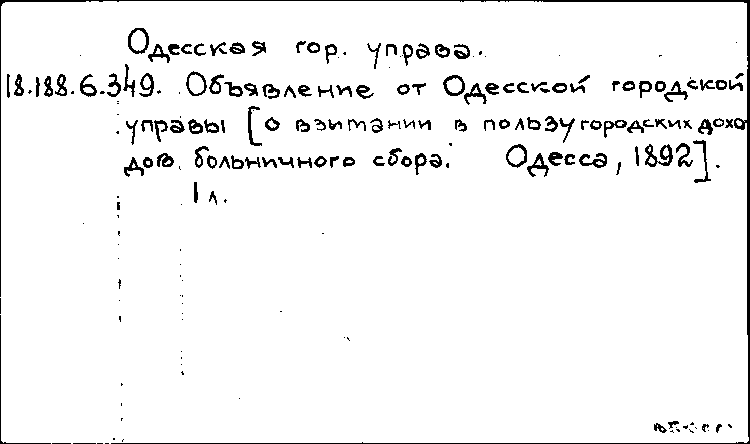 Одесская гор. управа.
18.188.6.349. Объявление от Одесской городской
управы [о взимании в пользу городских дохо
дов больничного сбора. Одесса, 1892].
1 л.